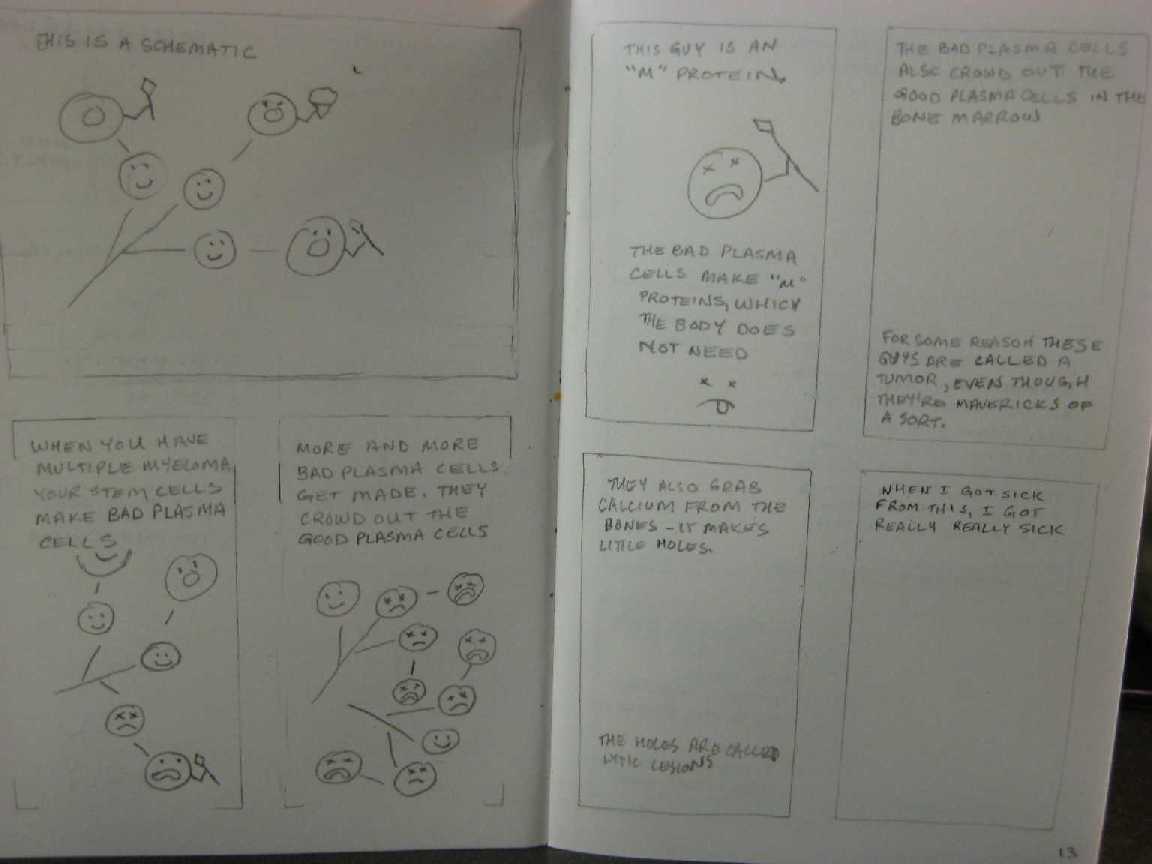 THIS IS A SCHEMATIC
WHEN YOU HAVE
MULTIPLE MYELOMA,
YOUR STEM CELLS
MAKE BAD PLASMA
CELLS
MORE AND MORE
BAD PLASMA CELLS
GET MADE. THEY
CROWD OUT THE
GOOD PLASMA CELLS
THIS GUY IS AN
"M" PROTEIN.
THE BAD PLASMA
CELLS MAKE "M"
PROTEINS, WHICH
THE BODY DOES
NOT NEED
THE BAD PLASMA CELLS
ALSO CROWD OUT THE
GOOD PLASMA CELLS IN THE
BONE MARROW
FOR SOME REASON THESE
GUYS ARE CALLED A
TUMOR, EVEN THOUGH
THEY'RE MAVERICKS OF
A SORT.
THEY ALSO GRAB
CALCIUM FROM THE
BONES - IT MAKES
LITTLE HOLES.
THE HOLES ARE CALLED
LYTIC LESIONS
WHEN I GOT SICK
FROM THIS, I GOT
REALLY REALLY SICK
13